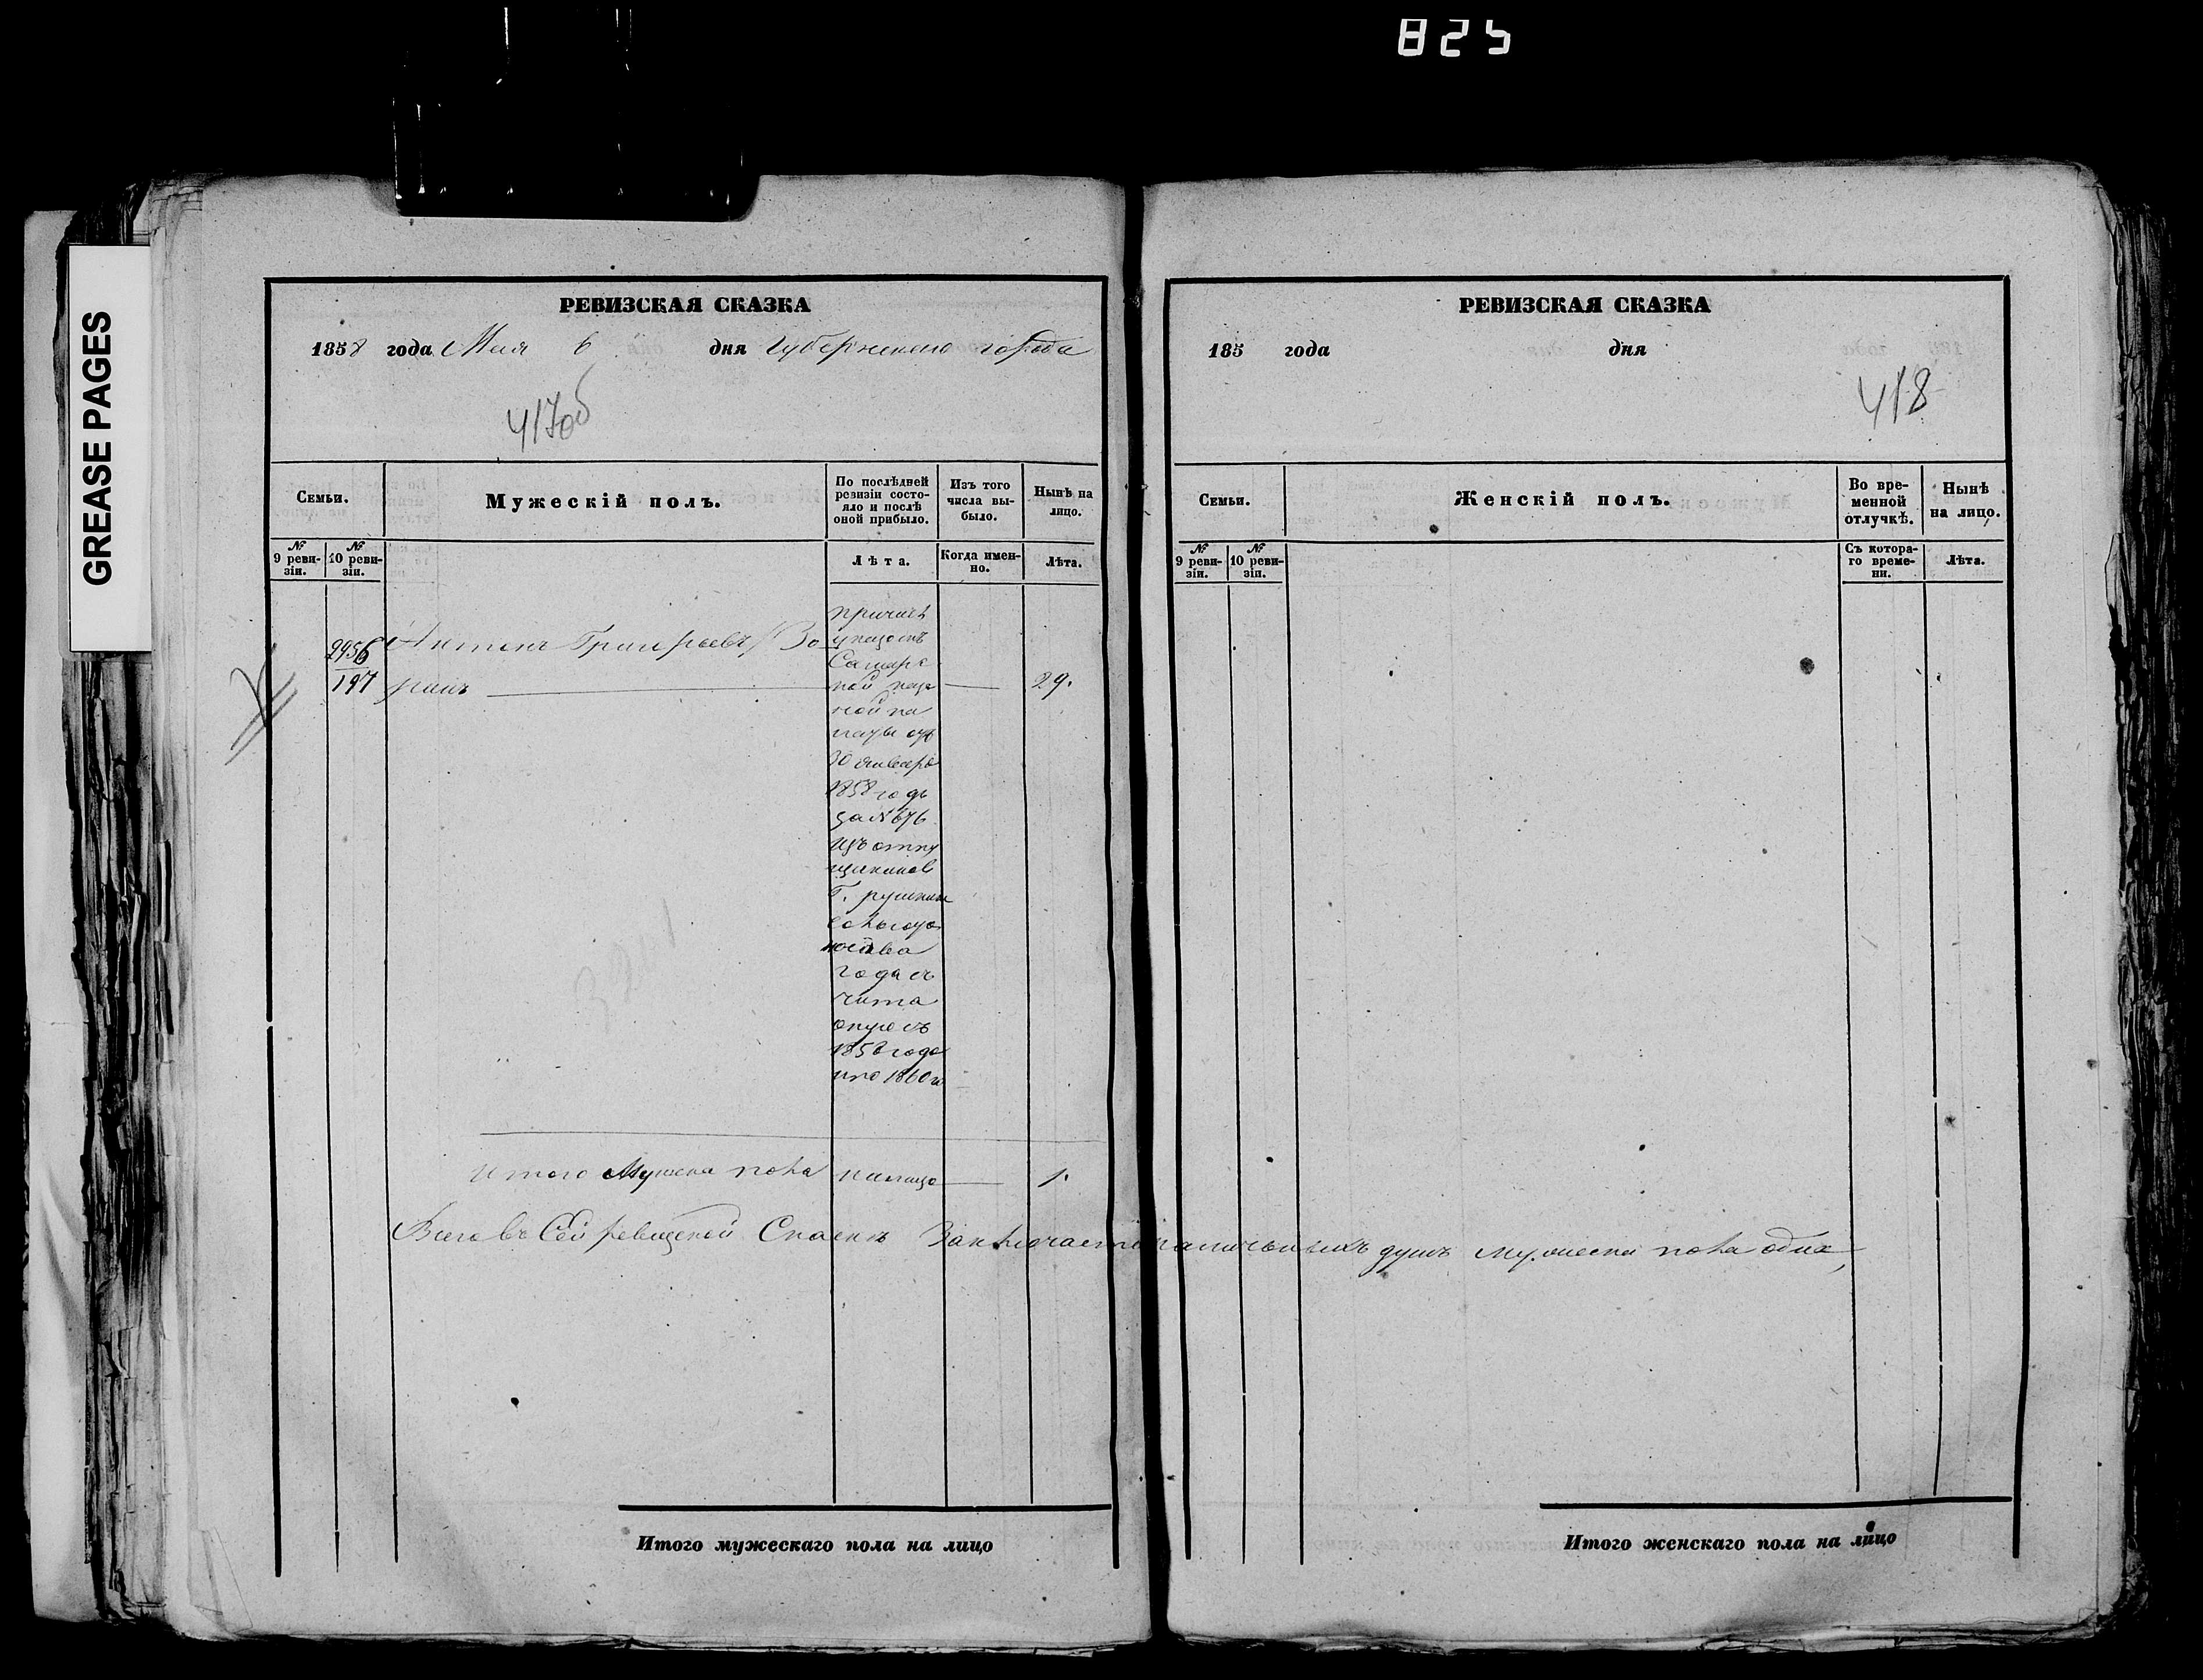 825
GREASE PAGES
РЕВИЗСКАЯ СКАЗКА
1858 года Мая 6 дня Губернскаго города
417об
Семьи.
Мужескій полъ.
По послѣдней
ревизіи состо-
яло и послѣ
оной прибыло.
Изъ того
числа вы-
было.
Нынѣ на
лицо.
№
9 реви-
зіи.
№
10 реви-
зіи.
Лѣта.
Когда имен-
но.
Лѣта.
2956
197
Антонъ Григорьевъ
29.
причис
указомъ
Самарс
кой казе
ной па
латы отъ
30 января
1858 годъ
за № 676
изъ
Г.
года съ
1858 года
по 1860 г
Итого Мужска пола налицо 1.
Всего въ Сей ревизской Скаскѣ Заключаетъ наличныхъ душъ мужеска пола одна
Итого мужескаго пола на лицо
РЕВИЗСКАЯ СКАЗКА
185 года дня
418
Семьи.
Женскій полъ.
Во вре-
менной
отлучкѣ.
Нынѣ
на лицо.
№
9 реви-
зіи.
№
10 реви-
зіи.
Съ котора-
го време-
ни.
Лѣта.
Итого женскаго пола на лицо